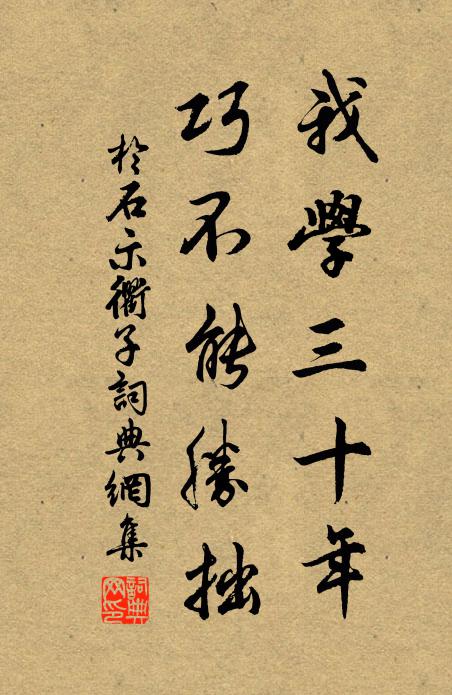 我學三十年
巧不能勝拙
於石示衢子詞典網集
詞典網印